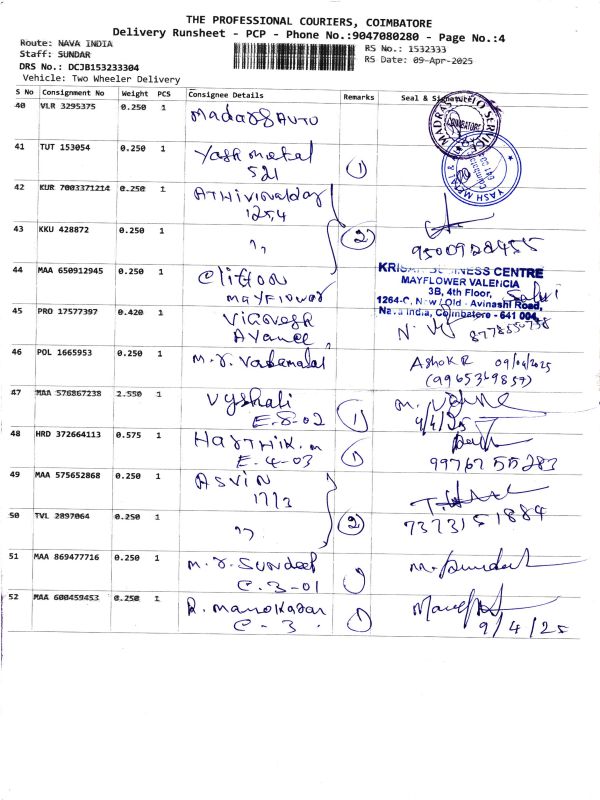 THE PROFESSIONAL COURIERS, COIMBATORE
Delivery Runsheet - PCP - Phone No.:9047080280 - Page No.:4
Route: NAVA INDIA
Staff: SUNDAR
DRS No.: DCJB153233304
Vehicle: Two Wheeler Delivery
RS No.: 1532333
RS Date: 09-Apr-2025
S No Consignment No Weight PCS Consignee Details Remarks Seal & Signature
40 VLR 3295375 0.250 1 Madras Auto
COIMBATORE
41 TUT 153054 0.250 1 Yash metal 1
521
YASH METAL &
42 KUR 7003371214 0.250 1
1254
43 KKU 428872 0.250 1 ,, 2 9500928455
44 MAA 650912945 0.250 1 Clifton
MAYFlower
KRISAH BUSINESS CENTRE
MAYFLOWER VALENCIA
3B, 4th Floor,
1264-C, New / Old - Avinashi Road,
Nava India, Coimbatore - 641 004
45 PRO 17577397 0.420 1 Vignesh
46 POL 1665953 0.250 1 Ashok R 09/04/2025
(9965369859)
47 MAA 576867238 2.550 1 Vyshali 1
E.8-02
9/4/25
48 HRD 372664113 0.575 1 Harthik.m 1
E.4-03
99767 55283
49 MAA 575652868 0.250 1 ASVIN
171/3
50 TVL 2897064 0.250 1 ,, 2 7373151884
51 MAA 869477716 0.250 1 M.r. Sundeep
C.3-01
52 MAA 600459453 0.250 1 R. Manokaran 1
C-3.
9/4/25